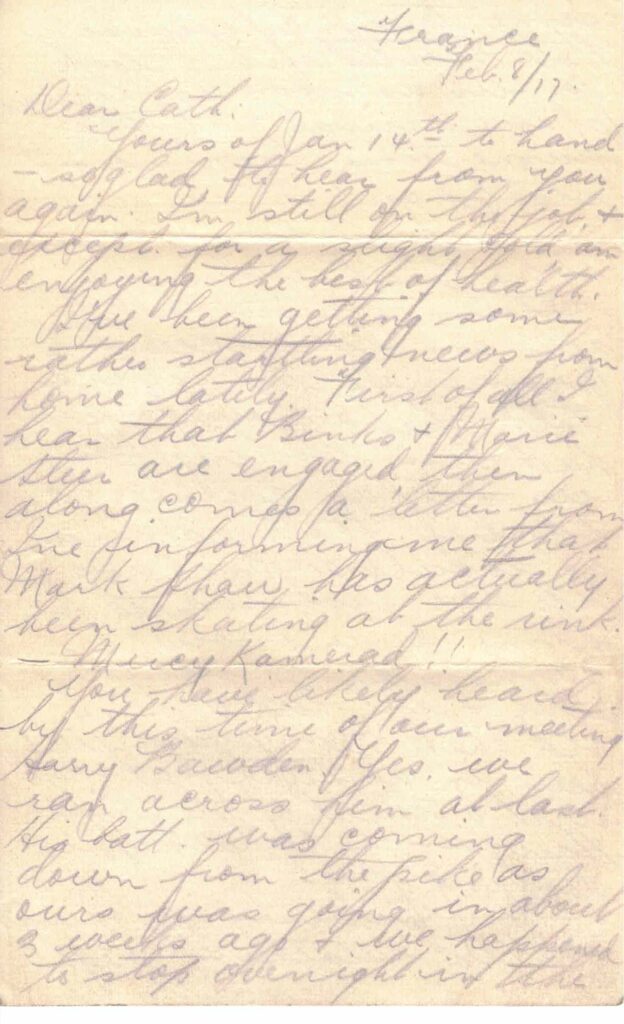 France
Feb. 8/17.
Dear Cath:
Yours of Jan 14.th to hand
– so glad to hear from you
again. I'm still on the job &
except for a slight cold am
enjoying the best of health.
I've been getting some
rather startling news from
home lately. First of all I
hear that Binks & Marie
Steer are engaged then
along comes a letter from
informing me that
Mark Shaw has actually
been skating at the rink.
– Mercy Kamerad!!
You have likely heard
by this time of our meeting
Harry Bawden. Yes, we
ran across him at last.
His batt. was coming
down from the as
ours was going in about
3 weeks ago & we happened
to stop overnight in the